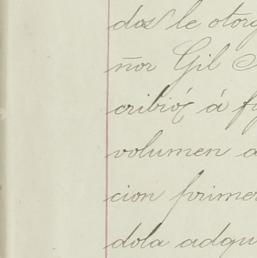 dos le otorg
ñor Gil S
cribió á f
volumen a
cion primer
dola adqu